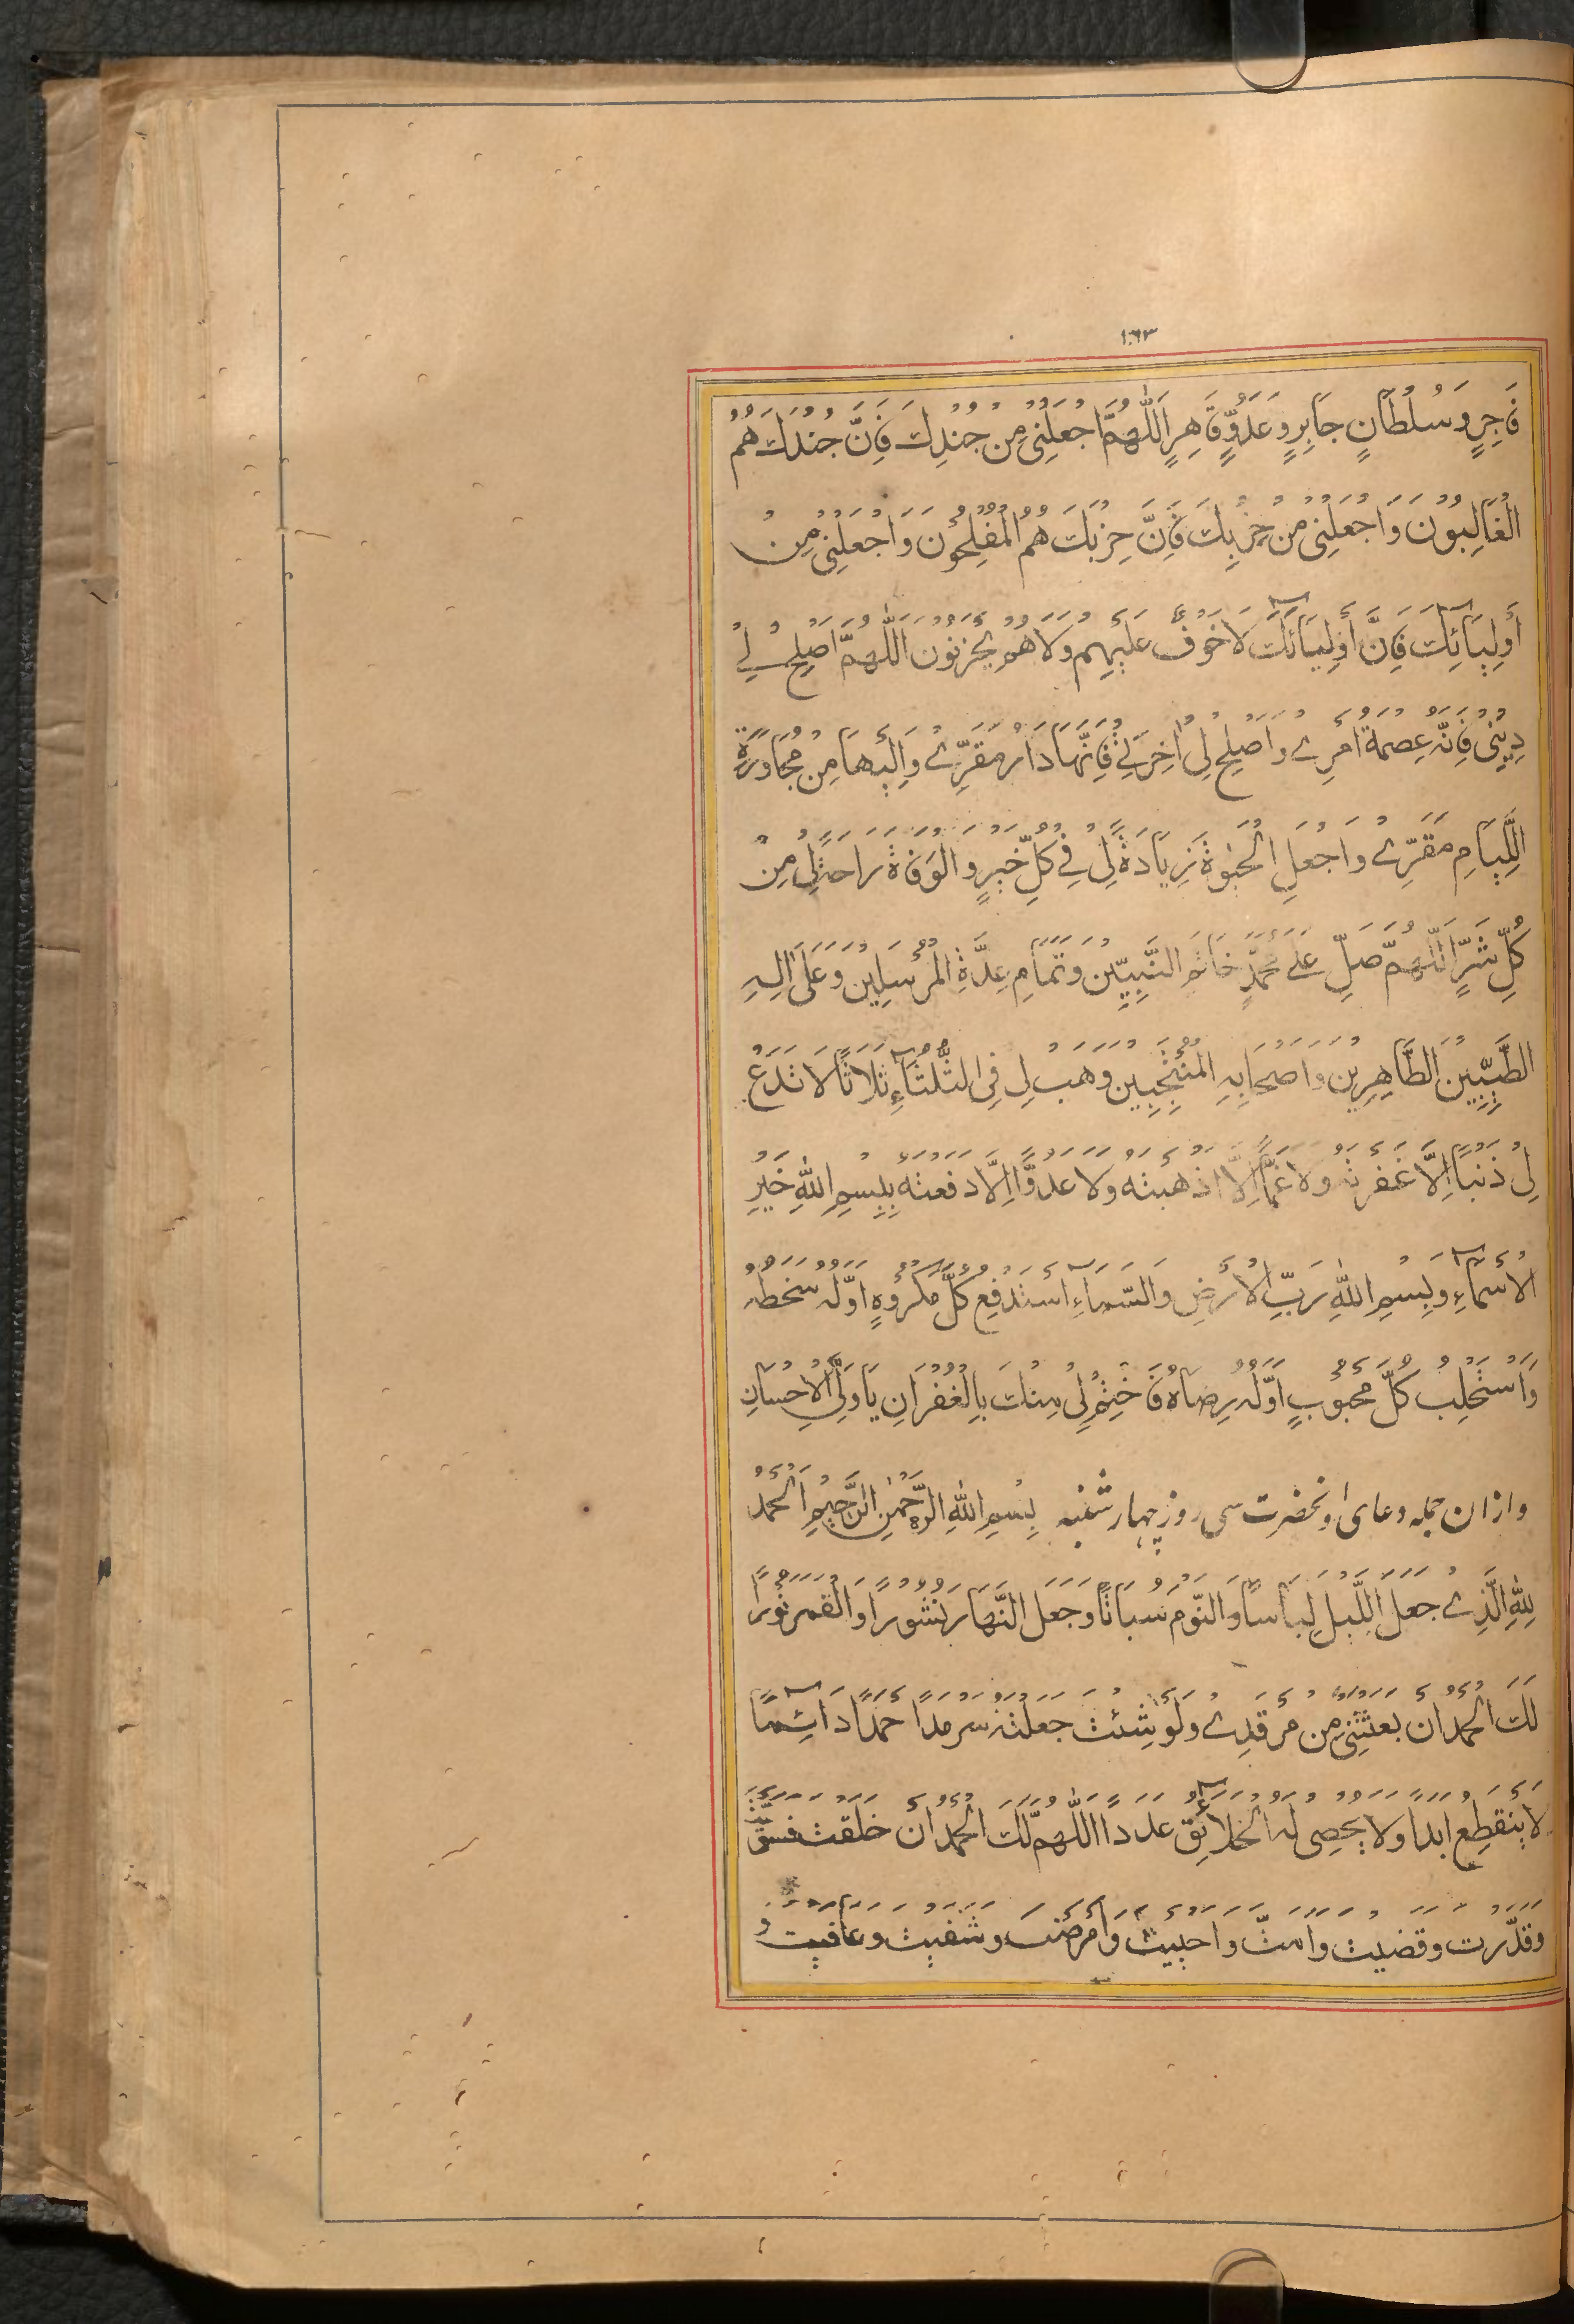 ١٠٦٣
فَاجِرٍ وَسُلْطَانٍ جَابِرٍ وَعَدُوٍّ قَاهِرٍ اَللّٰهُمَّ اجْعَلْنِیْ مِنْ جُنْدِكَ فَاِنَّ جُنْدَكَ هُمُ
الْغَالِبُوْنَ وَاجْعَلْنِیْ مِنْ حِزْبِكَ فَاِنَّ حِزْبَكَ هُمُ الْمُفْلِحُوْنَ وَاجْعَلْنِیْ مِنْ
اَوْلِيَآئِكَ فَاِنَّ اَوْلِيَآئَكَ لَاخَوْفٌ عَلَيْهِمْ وَلَا هُمْ يَحْزَنُوْنَ اَللّٰهُمَّ اَصْلِحْ لِیْ
دِيْنِیْ فَاِنَّهٗ عِصْمَةُ اَمْرِیْ وَاَصْلِحْ لِیْ اٰخِرَتِیْ فَاِنَّهَا دَارُ مَقَرِّیْ وَاِلَيْهَا مِنْ مُجَاوَرَةِ
اللِّيَامِ مَقَرِّیْ وَاجْعَلِ الْحَيٰوةَ زِيَادَةً لِیْ فِیْ كُلِّ خَيْرٍ وَالْوَفَاةَ رَاحَةً لِیْ مِنْ
كُلِّ شَرٍّ اَللّٰهُمَّ صَلِّ عَلٰى مُحَمَّدٍ خَاتَمِ النَّبِيِّيْنَ وَتَمَامِ عِدَّةِ الْمُرْسَلِيْنَ وَعَلٰى اٰلِهِ
الطَّيِّبِيْنَ الطَّاهِرِيْنَ وَاَصْحَابِهِ الْمُنْتَجَبِيْنَ وَهَبْ لِیْ فِی الثُّلَثَآءِ ثَلَاثًا لَا تَدَعْ
لِیْ ذَنْبًا اِلَّا غَفَرْتَهٗ وَلَا غَمًّا اِلَّا اَذْهَبْتَهٗ وَلَا عَدُوًّا اِلَّا دَفَعْتَهٗ بِبِسْمِ اللّٰهِ خَيْرِ
الْاَسْمَآءِ وَبِسْمِ اللّٰهِ رَبِّ الْاَرْضِ وَالسَّمَآءِ اَسْتَدْفِعُ كُلَّ مَكْرُوْهٍ اَوَّلُهٗ سَخَطُهٗ
وَاَسْتَجْلِبُ كُلَّ مَحْبُوْبٍ اَوَّلُهٗ رِضَاهُ فَاخْتِمْ لِیْ مِنْكَ بِالْغُفْرَانِ يَا وَلِیَّ الْاِحْسَانِ
وازان جمله دعای اونحضرت سی روز چهار شنبه بِسْمِ اللّٰهِ الرَّحْمٰنِ الرَّحِيْمِ اَلْحَمْدُ
لِلّٰهِ الَّذِیْ جَعَلَ اللَّيْلَ لِبَاسًا وَالنَّوْمَ سُبَاتًا وَجَعَلَ النَّهَارَ نُشُوْرًا وَالْقَمَرَ نُوْرًا
لَكَ الْحَمْدُ اَنْ بَعَثْتَنِیْ مِنْ مَرْقَدِیْ وَلَوْ شِئْتَ جَعَلْتَهٗ سَرْمَدًا حَمْدًا دَآئِمًا
لَا يَنْقَطِعُ اَبَدًا وَلَا يُحْصِی لَهُ الْخَلَآئِقُ عَدَدًا اَللّٰهُمَّ لَكَ الْحَمْدُ اَنْ خَلَقْتَ فَسَوَّيْتَ
وَقَدَّرْتَ وَقَضَيْتَ وَاَمَتَّ وَاَحْيَيْتَ وَاَمْرَضْتَ وَشَفَيْتَ وَعَافَيْتَ وَ